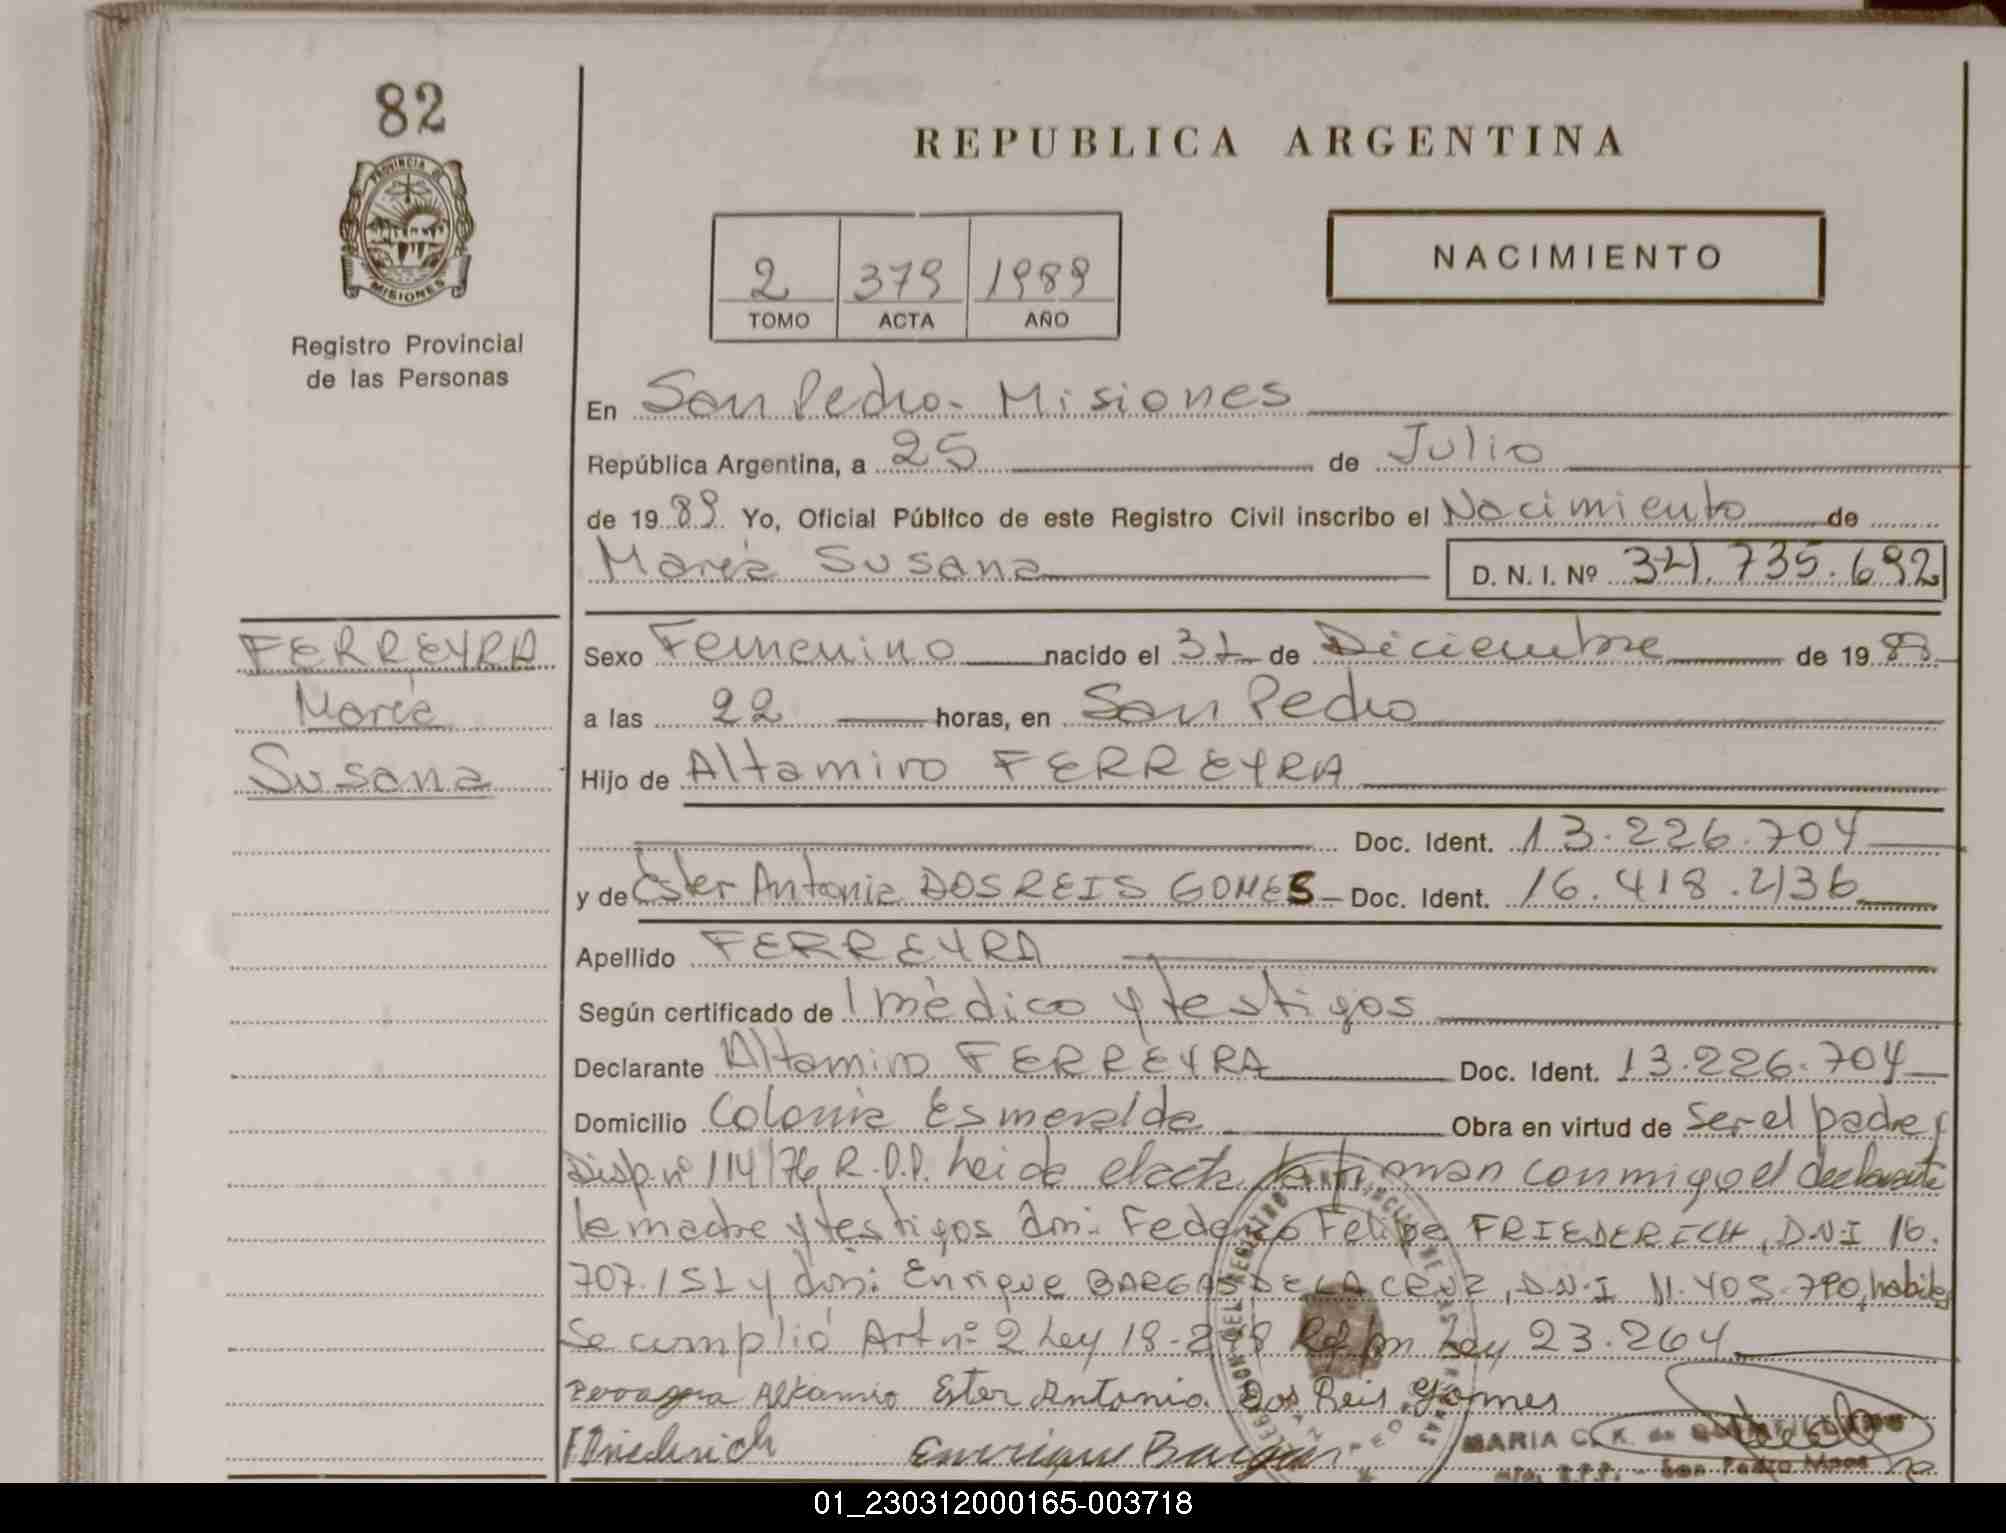 82
REPUBLICA ARGENTINA
PROVINCIA DE
MISIONES
Registro Provincial
de las Personas
2 379 1989
TOMO ACTA AÑO
NACIMIENTO
En San Pedro - Misiones
República Argentina, a 25 de Julio
de 1989 Yo, Oficial Público de este Registro Civil inscribo el Nacimiento de
María Susana D. N. I. Nº 34.735.692
FERREYRA
María
Susana
Sexo Femenino nacido el 31 de Diciembre de 19
a las 22 horas, en San Pedro
Hijo de Altamiro FERREYRA
Doc. Ident. 13.226.704
y de Ester Antonia DOS REIS GOMES - Doc. Ident. 16.418.436
Apellido FERREYRA
Según certificado de 1 médico y testigos
Declarante Altamiro FERREYRA Doc. Ident. 13.226.704
Domicilio Colonia Esmeralda Obra en virtud de ser el padre y
Disp. nº 114/76 R.P.P. leida el acta la firman conmigo el declarante
la madre y testigos don: Federico Felipe FRIEDERICH, D.N.I 16.
707.151 y don: Enrique BARGAS DE LA CRUZ, D.N.I 11.405.790, habiles
Se cumplió Art nº 2 Ley 18.248 Ley 23.264
Ester Antonia Dos Reis Gomes
Friederich Enrique Bargas
MARIA C. K. de
San Pedro Mnes
01_230312000165-003718